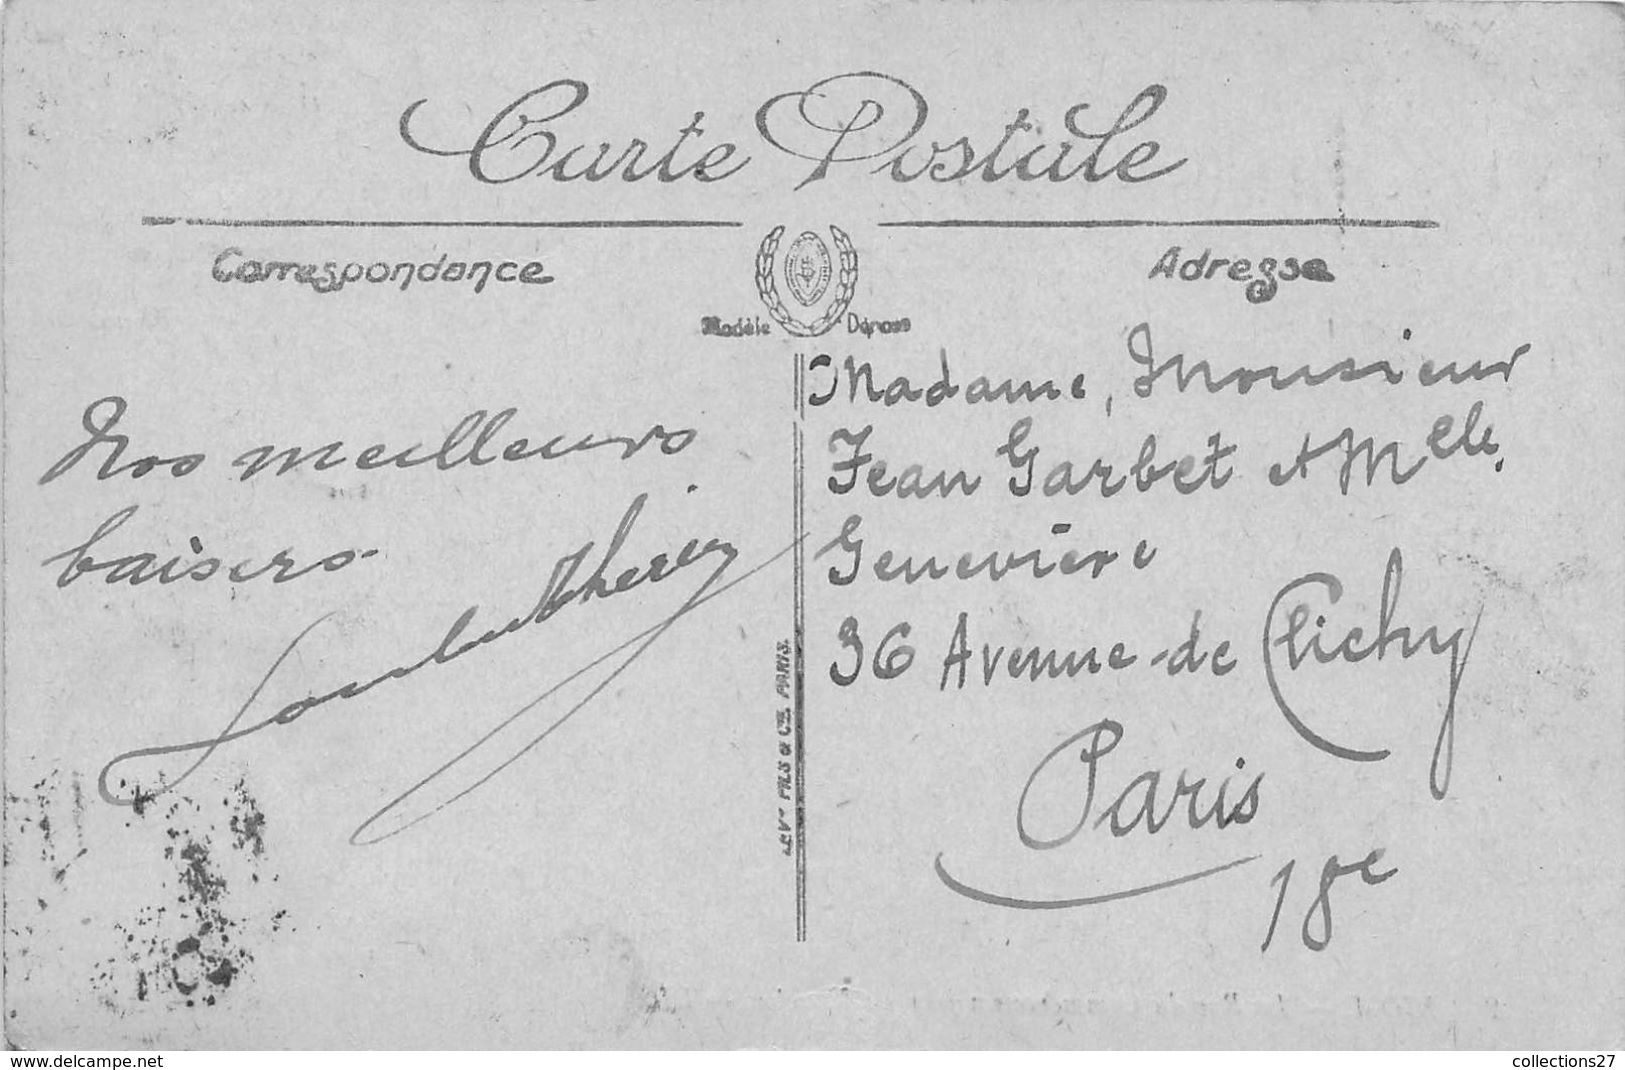 Carte Postale
Correspondance
Adresse
Modèle Déposé
Nos meilleurs
baisers
Madame, Monsieur
Jean Garbet et Melle
Geneviève
36 Avenue de Clichy
Paris
18e
LEVY FILS & CIE. PARIS.
www.delcampe.net
collections27